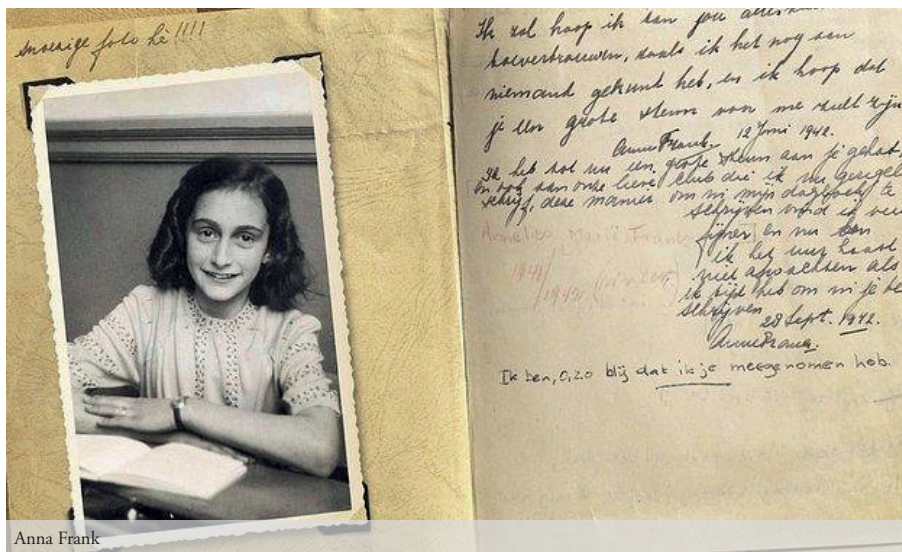 snoezige foto hè!!!!
Ik zal hoop ik aan jou alles
toevertrouwen, zoals ik het nog aan
niemand gekund heb, en ik hoop dat
je een grote steun voor me zult zijn
Anne Frank. 12 Juni 1942.
Ik heb tot nu een grote steun aan je gehad,
en ook aan onze lieve club die ik nu geregeld
schrijf, deze manier om in mijn dagboek te
schrijven vind ik veel
fijner en nu kan
ik het uur haast
niet afwachten als
ik tijd heb om in je te
schrijven
28 Sept. 1942.
Anne Frank.
Annelies, Marie Frank
1941/
1942 (
Ik ben, o, zo blij dat ik je meegenomen heb.
Anna Frank